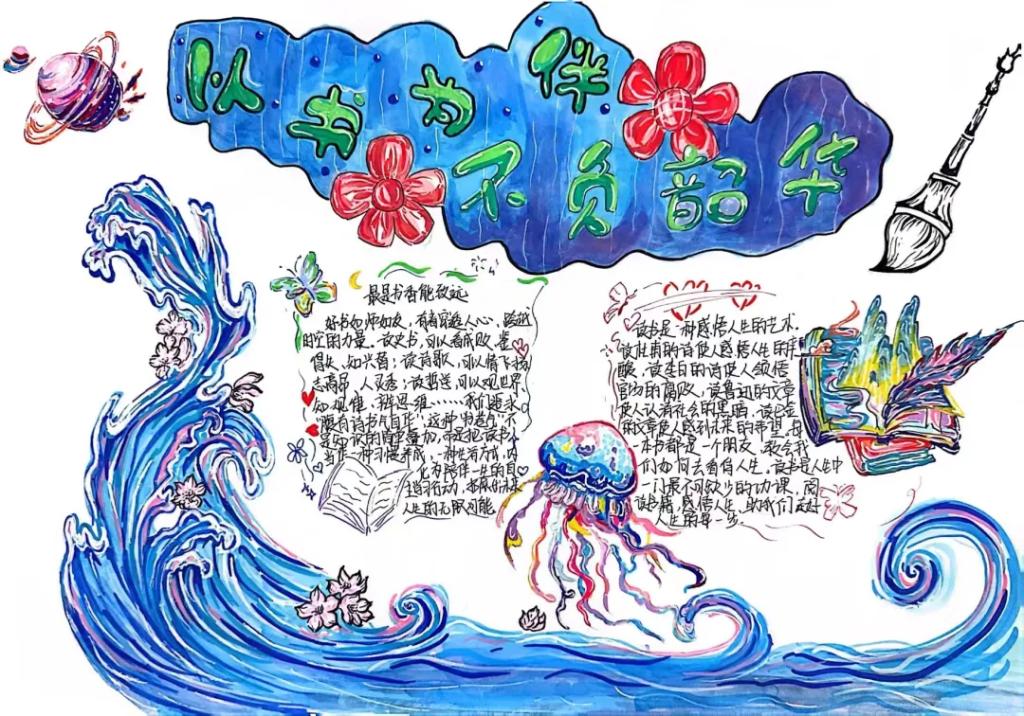 以书为伴
不负韶华
最是书香能致远
好书如师如友，有着穿透人心、跨越
时空的力量。读史书，可以看成败、鉴
得失、知兴替；读诗歌，可以情飞扬、
志高昂、人灵秀；读哲学，可以观世界
知规律、辨思维……我们追求
"腹有诗书气自华"，这种"书卷气"不
是知识的简单叠加，而是把读书
当作一种习惯养成，一种生活方式，内
化为陪伴一生的自
觉行动，拓展
人生的无限可能
读书是一种感悟人生的艺术。
读杜甫的诗使人感悟人生的辛
酸，读李白的诗使人领悟
官场的腐败，读鲁迅的文章
使人认清社会的黑暗，读巴金
的文章使人感到未来的希望，每
一本书都是一个朋友，教会我
们如何去看待人生。读书是人生中
一门最不可缺少的功课，阅
读书籍，感悟人生，助我们走好
人生的每一步。